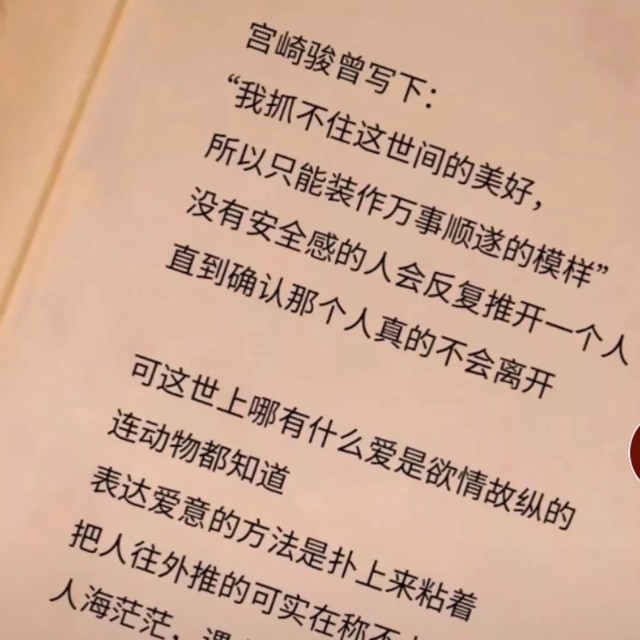 宫崎骏曾写下：
“我抓不住这世间的美好，
所以只能装作万事顺遂的模样”
没有安全感的人会反复推开一个人
直到确认那个人真的不会离开
可这世上哪有什么爱是欲情故纵的
连动物都知道
表达爱意的方法是扑上来粘着
把人往外推的可实在称不
人海茫茫，遇